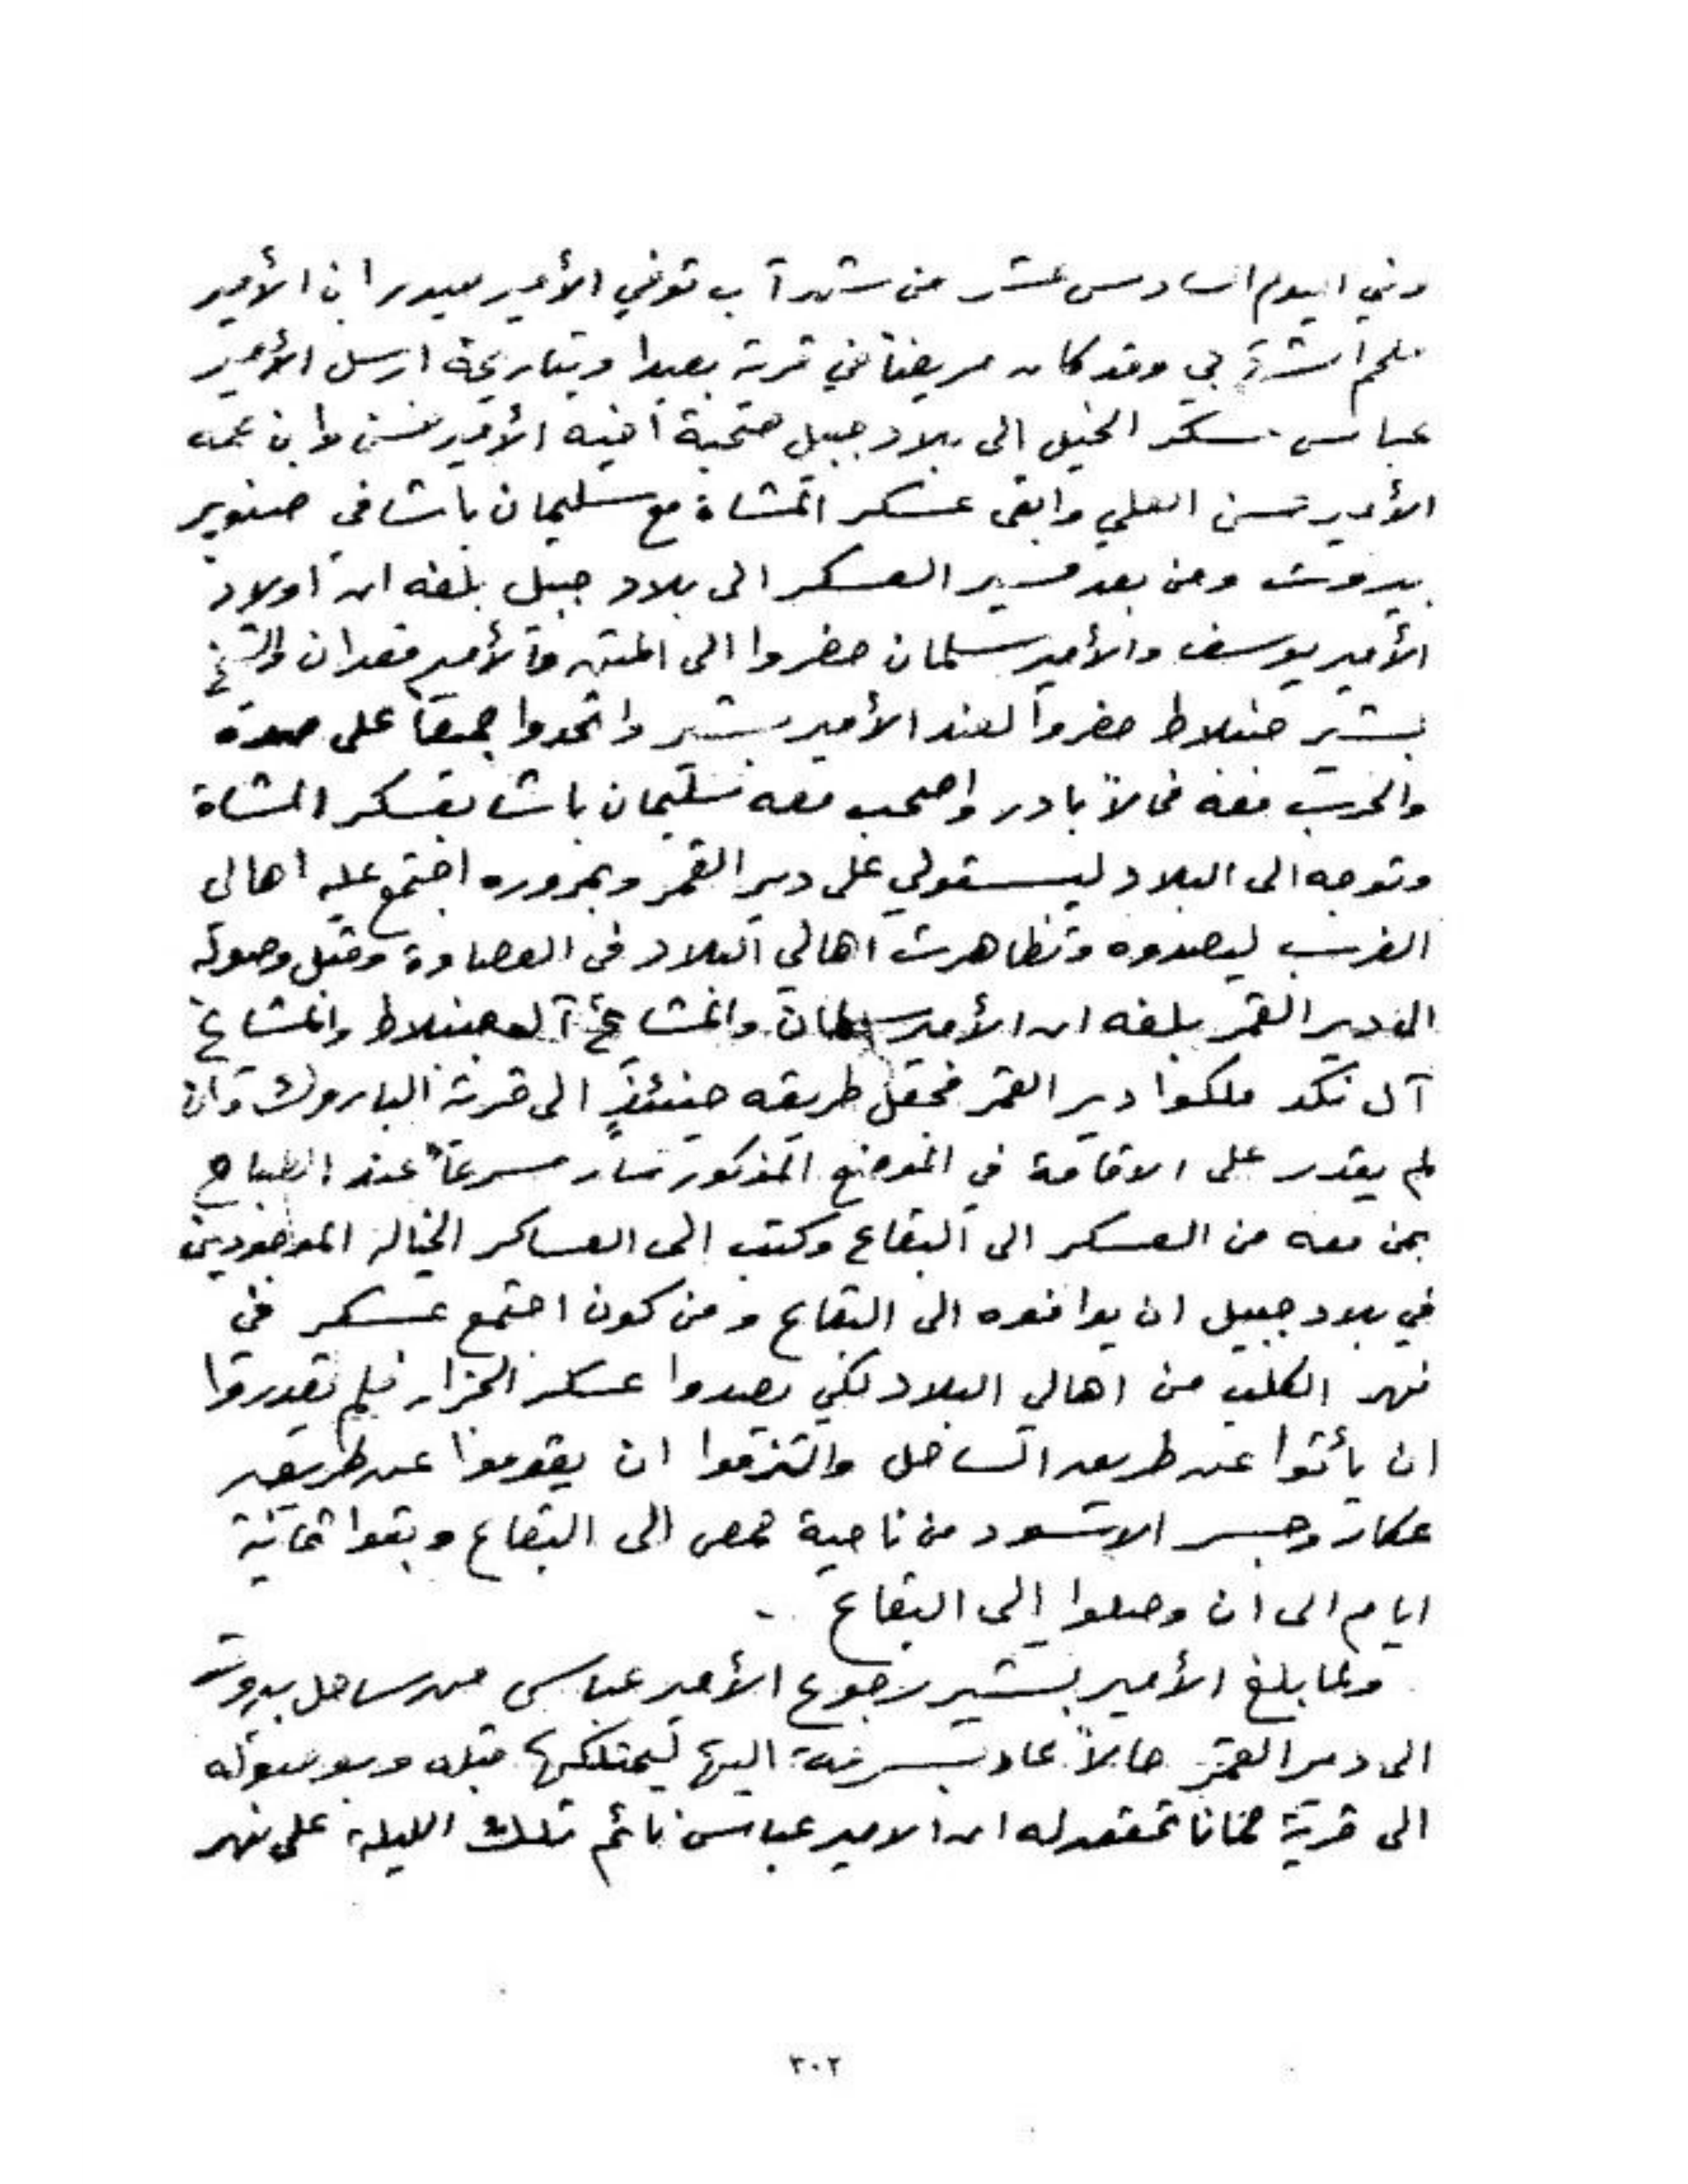 وفي اليوم السادس عشر من شهر آب توفي الأمير حيدر ابن الأمير
ملحم الشهابي وقد كان مريضاً في قرية بعبدا وبتاريخه ارسل الأمير
عباس عسكر الخيل الى بلاد جبيل صحبة اخيه الأمير حسن وابن عمه
الأمير حسن العلي وابقى عسكر المشاة مع سليمان باشا في صنوبر
بيروت ومن بعد مسير العسكر الى بلاد جبيل بلغه ان اولاد
الأمير يوسف والأمير سلمان حضروا الى المتن والأمير قعدان والشيخ
بشير جنبلاط حضروا لعند الأمير بشير واتحدوا جميعاً على صده
والحرب معه فحالاً بادر واصحب معه سليمان باشا بعسكر المشاة
وتوجه الى البلاد ليستولي على دير القمر وبمروره اجتمع عليه اهالي
الغرب ليصدوه وتظاهرت اهالي البلاد في العصاوة وقبل وصوله
الى دير القمر بلغه ان الأمير سلمان والمشايخ آل جنبلاط والمشايخ
آل نكد ملكوا دير القمر فجعل طريقه حينئذٍ الى قرية الباروك وان
لم يقدر على الاقامة في الموضع المذكور سار مسرعاً عند الصباح
بمن معه من العسكر الى البقاع وكتب الى العساكر الخيالة الموجودين
في بلاد جبيل ان يوافوه الى البقاع ومن كون اجتمع عسكر في
نهر الكلب من اهالي البلاد لكي يصدوا عسكر الجزار فلم يقدروا
ان يأتوا عن طريق الساحل والتزموا ان يقوموا عن طريق
عكار وجسر الاسود من ناحية حمص الى البقاع وبقوا ثمانية
ايام الى ان وصلوا الى البقاع .
ولما بلغ الأمير بشير رجوع الأمير عباس من ساحل بيروت
الى دير القمر حالاً عاد بسرعة اليها ليمتلكها قبله وبوصوله
الى قرية حمانا تحقق له ان الامير عباس نائم تلك الليلة على نهر
٣٠٢